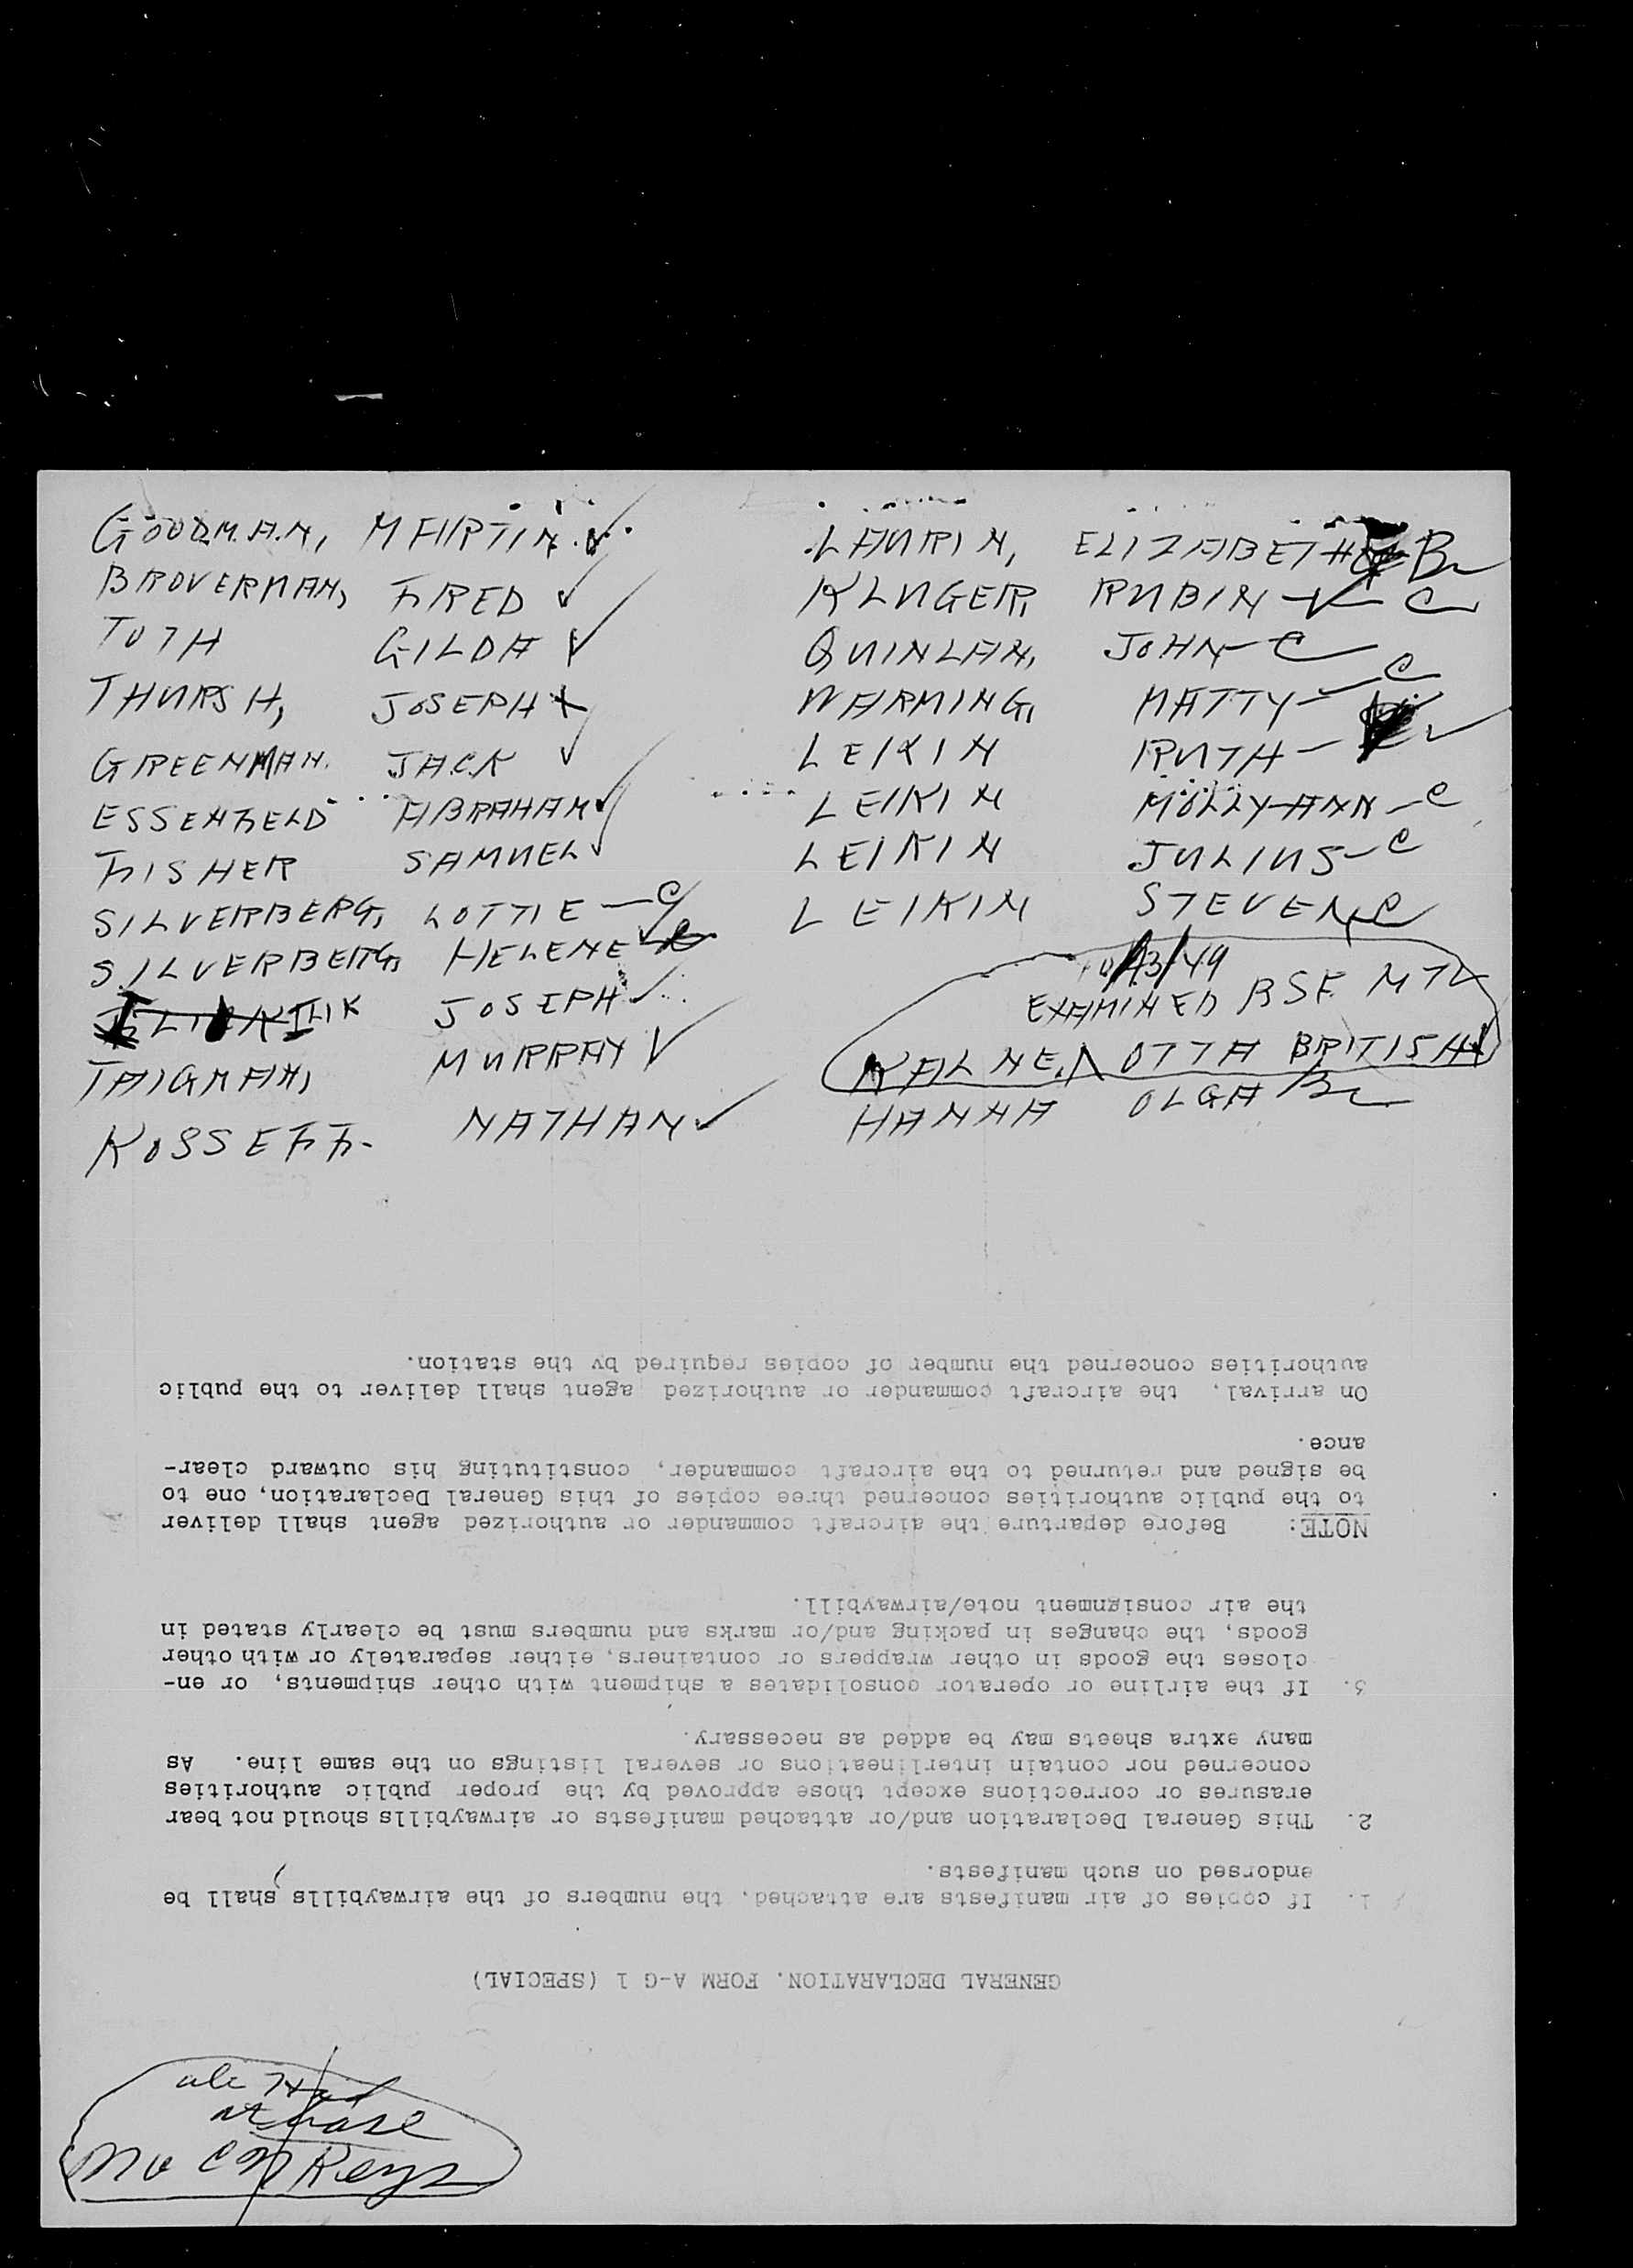 GOODMAN, MARTIN
BROVERMAN, FRED
TOTH GILDA
THURSH, JOSEPH
GREENMAN. JACK
ESSENFELD ABRAHAM
FISHER SAMUEL
SILVERBERG, LOTTIE - C
SILVERBERG, HELENE
JOSEPH
TAIGMAN, MURRAY
KOSSEFF. NATHAN
LAURIN, ELIZABETH B
KLUGER, RUBIN C
QUINLAN, JOHN - C
WARMING, MATTY - C
LEIKIN RUTH -
LEIKIN MOLLY-ANN - C
LEIKIN JULIUS - C
LEIKIN STEVEN - C
EXAMINED BSF. MTL
KALNE, OTTA BRITISH
HANNA OLGA Br
GENERAL DECLARATION, FORM A-G 1 (SPECIAL)
1. If copies of air manifests are attached, the numbers of the airwaybills shall be
endorsed on such manifests.
2. This General Declaration and/or attached manifests or airwaybills should not bear
erasures or corrections except those approved by the proper public authorities
concerned nor contain interlineations or several listings on the same line. As
many extra sheets may be added as necessary.
3. If the airline or operator consolidates a shipment with other shipments, or en-
closes the goods in other wrappers or containers, either separately or with other
goods, the changes in packing and/or marks and numbers must be clearly stated in
the air consignment note/airwaybill.
NOTE: Before departure the aircraft commander or authorized agent shall deliver
to the public authorities concerned three copies of this General Declaration, one to
be signed and returned to the aircraft commander, constituting his outward clear-
ance.
On arrival, the aircraft commander or authorized agent shall deliver to the public
authorities concerned the number of copies required by the station.